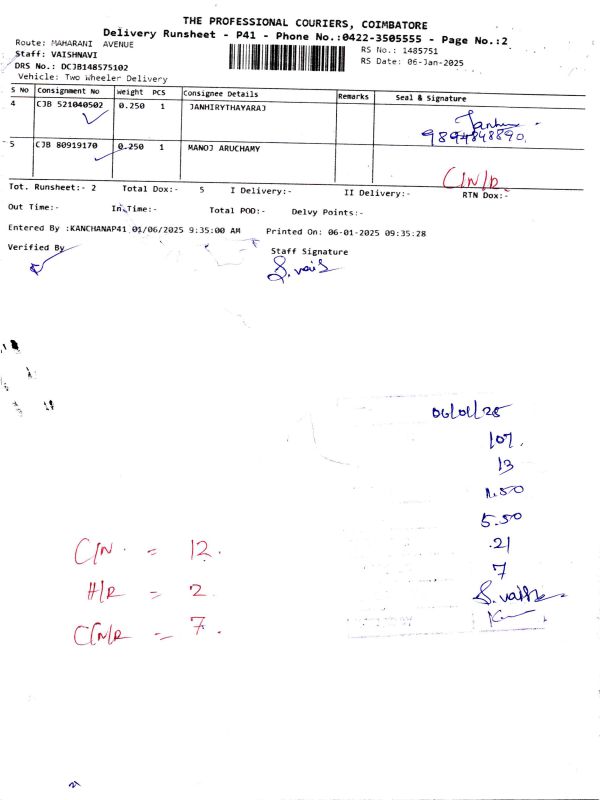 THE PROFESSIONAL COURIERS, COIMBATORE
Delivery Runsheet - P41 - Phone No.:0422-3505555 - Page No.:2
Route: MAHARANI AVENUE
RS No.: 1485751
Staff: VAISHNAVI
RS Date: 06-Jan-2025
DRS No.: DCJB148575102
Vehicle: Two Wheeler Delivery
S No Consignment No Weight PCS Consignee Details Remarks Seal & Signature
4 CJB 521040502 0.250 1 JANHIRYTHAYARAJ
9894848890.
5 CJB 80919170 0.250 1 MANOJ ARUCHAMY
C/N/R.
Tot. Runsheet:- 2 Total Dox:- 5 I Delivery:- II Delivery:- RTN Dox:-
Out Time:- In Time:- Total POD:- Delvy Points:-
Entered By :KANCHANAP41 01/06/2025 9:35:00 AM Printed On: 06-01-2025 09:35:28
Verified By Staff Signature
S. vais
06/01/25
107.
13
5.50
.21
7
S. vaish
C/N. = 12.
H/R = 2
C/N/R = 7.
21